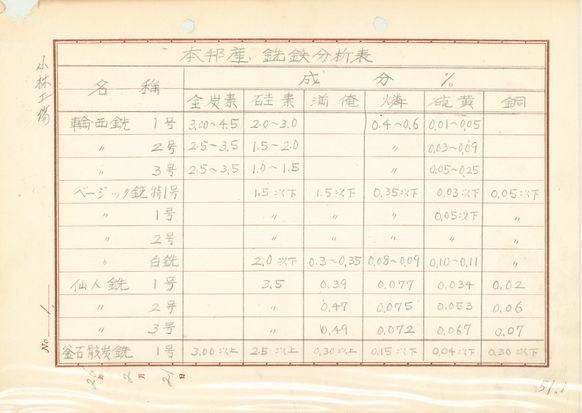 本邦産銑鉄分析表
名 称 成 分 %
全炭素 硅素 満俺 燐 硫黄 銅
輪西銑 1号 3.00~4.5 2.0~3.0 0.4~0.6 0.01~0.05
〃 2号 2.5~3.5 1.5~2.0 0.03~0.09
〃 3号 2.5~3.5 1.0~1.5 0.05~0.25
ベージック銑 特1号 1.5以下 1.5以下 0.35以下 0.03以下 0.05以下
〃 1号 〃 〃 〃 0.05以下 〃
〃 2号 〃 〃 〃 〃
〃 白銑 2.0以下 0.3~0.35 0.08~0.09 0.10~0.11 〃
仙人銑 1号 3.5 0.39 0.077 0.034 0.02
〃 2号 〃 0.47 0.075 0.053 0.06
〃 3号 〃 0.49 0.072 0.067 0.07
釜石骸炭銑 1号 3.00以上 2.5以上 0.30以上 0.15以下 0.04以下 0.30以下
小林工場
No 1.
年 2月 21日
51.1